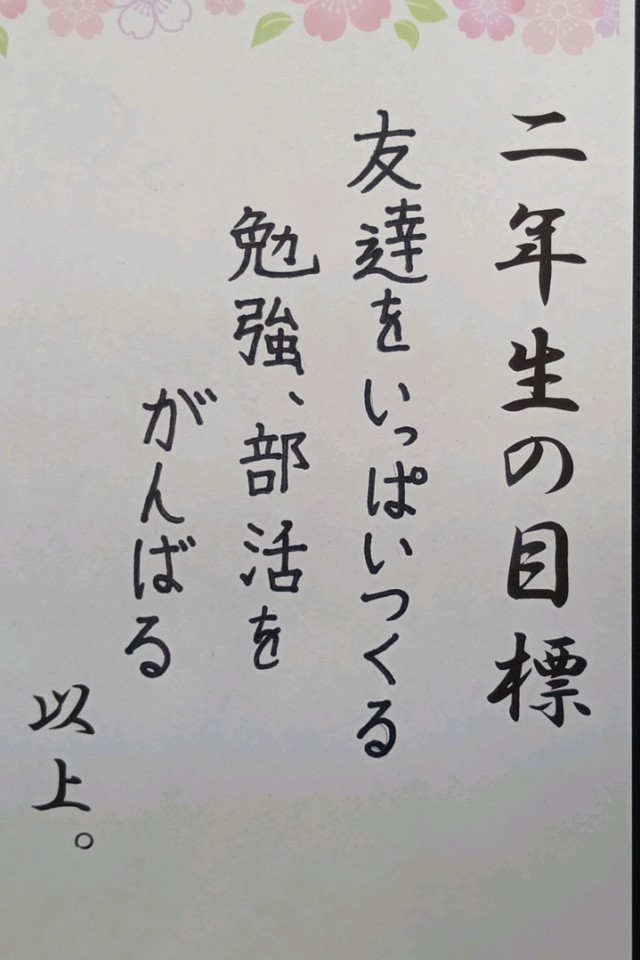 二年生の目標
友達をいっぱいつくる
勉強、部活を
がんばる
以上。